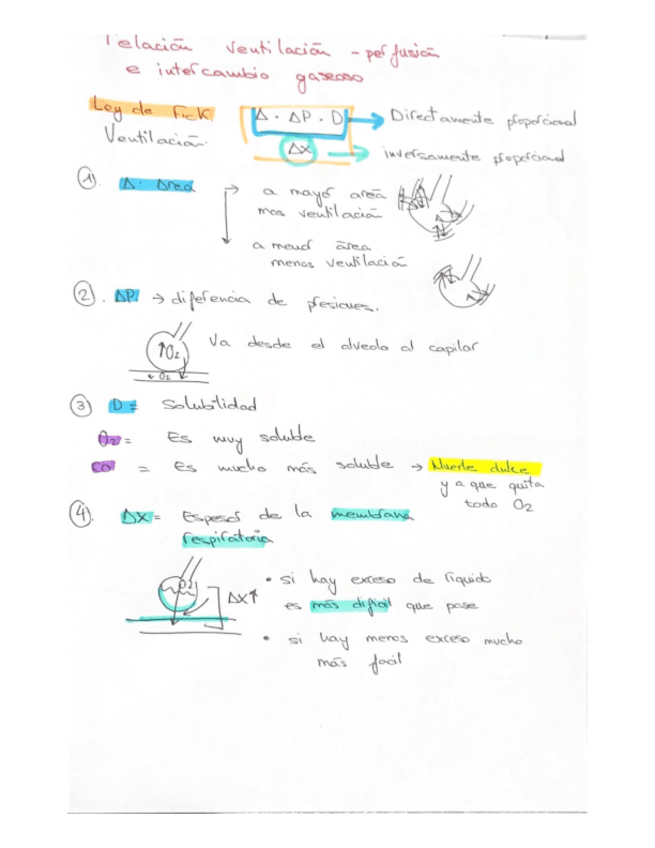 relación ventilación - perfusión
e intercambio gaseoso
Ley de Fick
Ventilación.
Δ · ΔP · D → Directamente proporcional
Δx → inversamente proporcional
1. Δ · Area → a mayor area
mas ventilación
a menor área
menos ventilación
2. ΔP. → diferencia de presiones.
↑O2
Va desde el alveolo al capilar
↓ O2
3 D = Solubilidad
O2 = Es muy soluble
CO = Es mucho más soluble → Muerte dulce
ya que quita
todo O2
4. Δx = Espesor de la membrana
respiratoria
O2
Δx↑
• si hay exceso de líquido
es más dificil que pase
• si hay menos exceso mucho
más facil